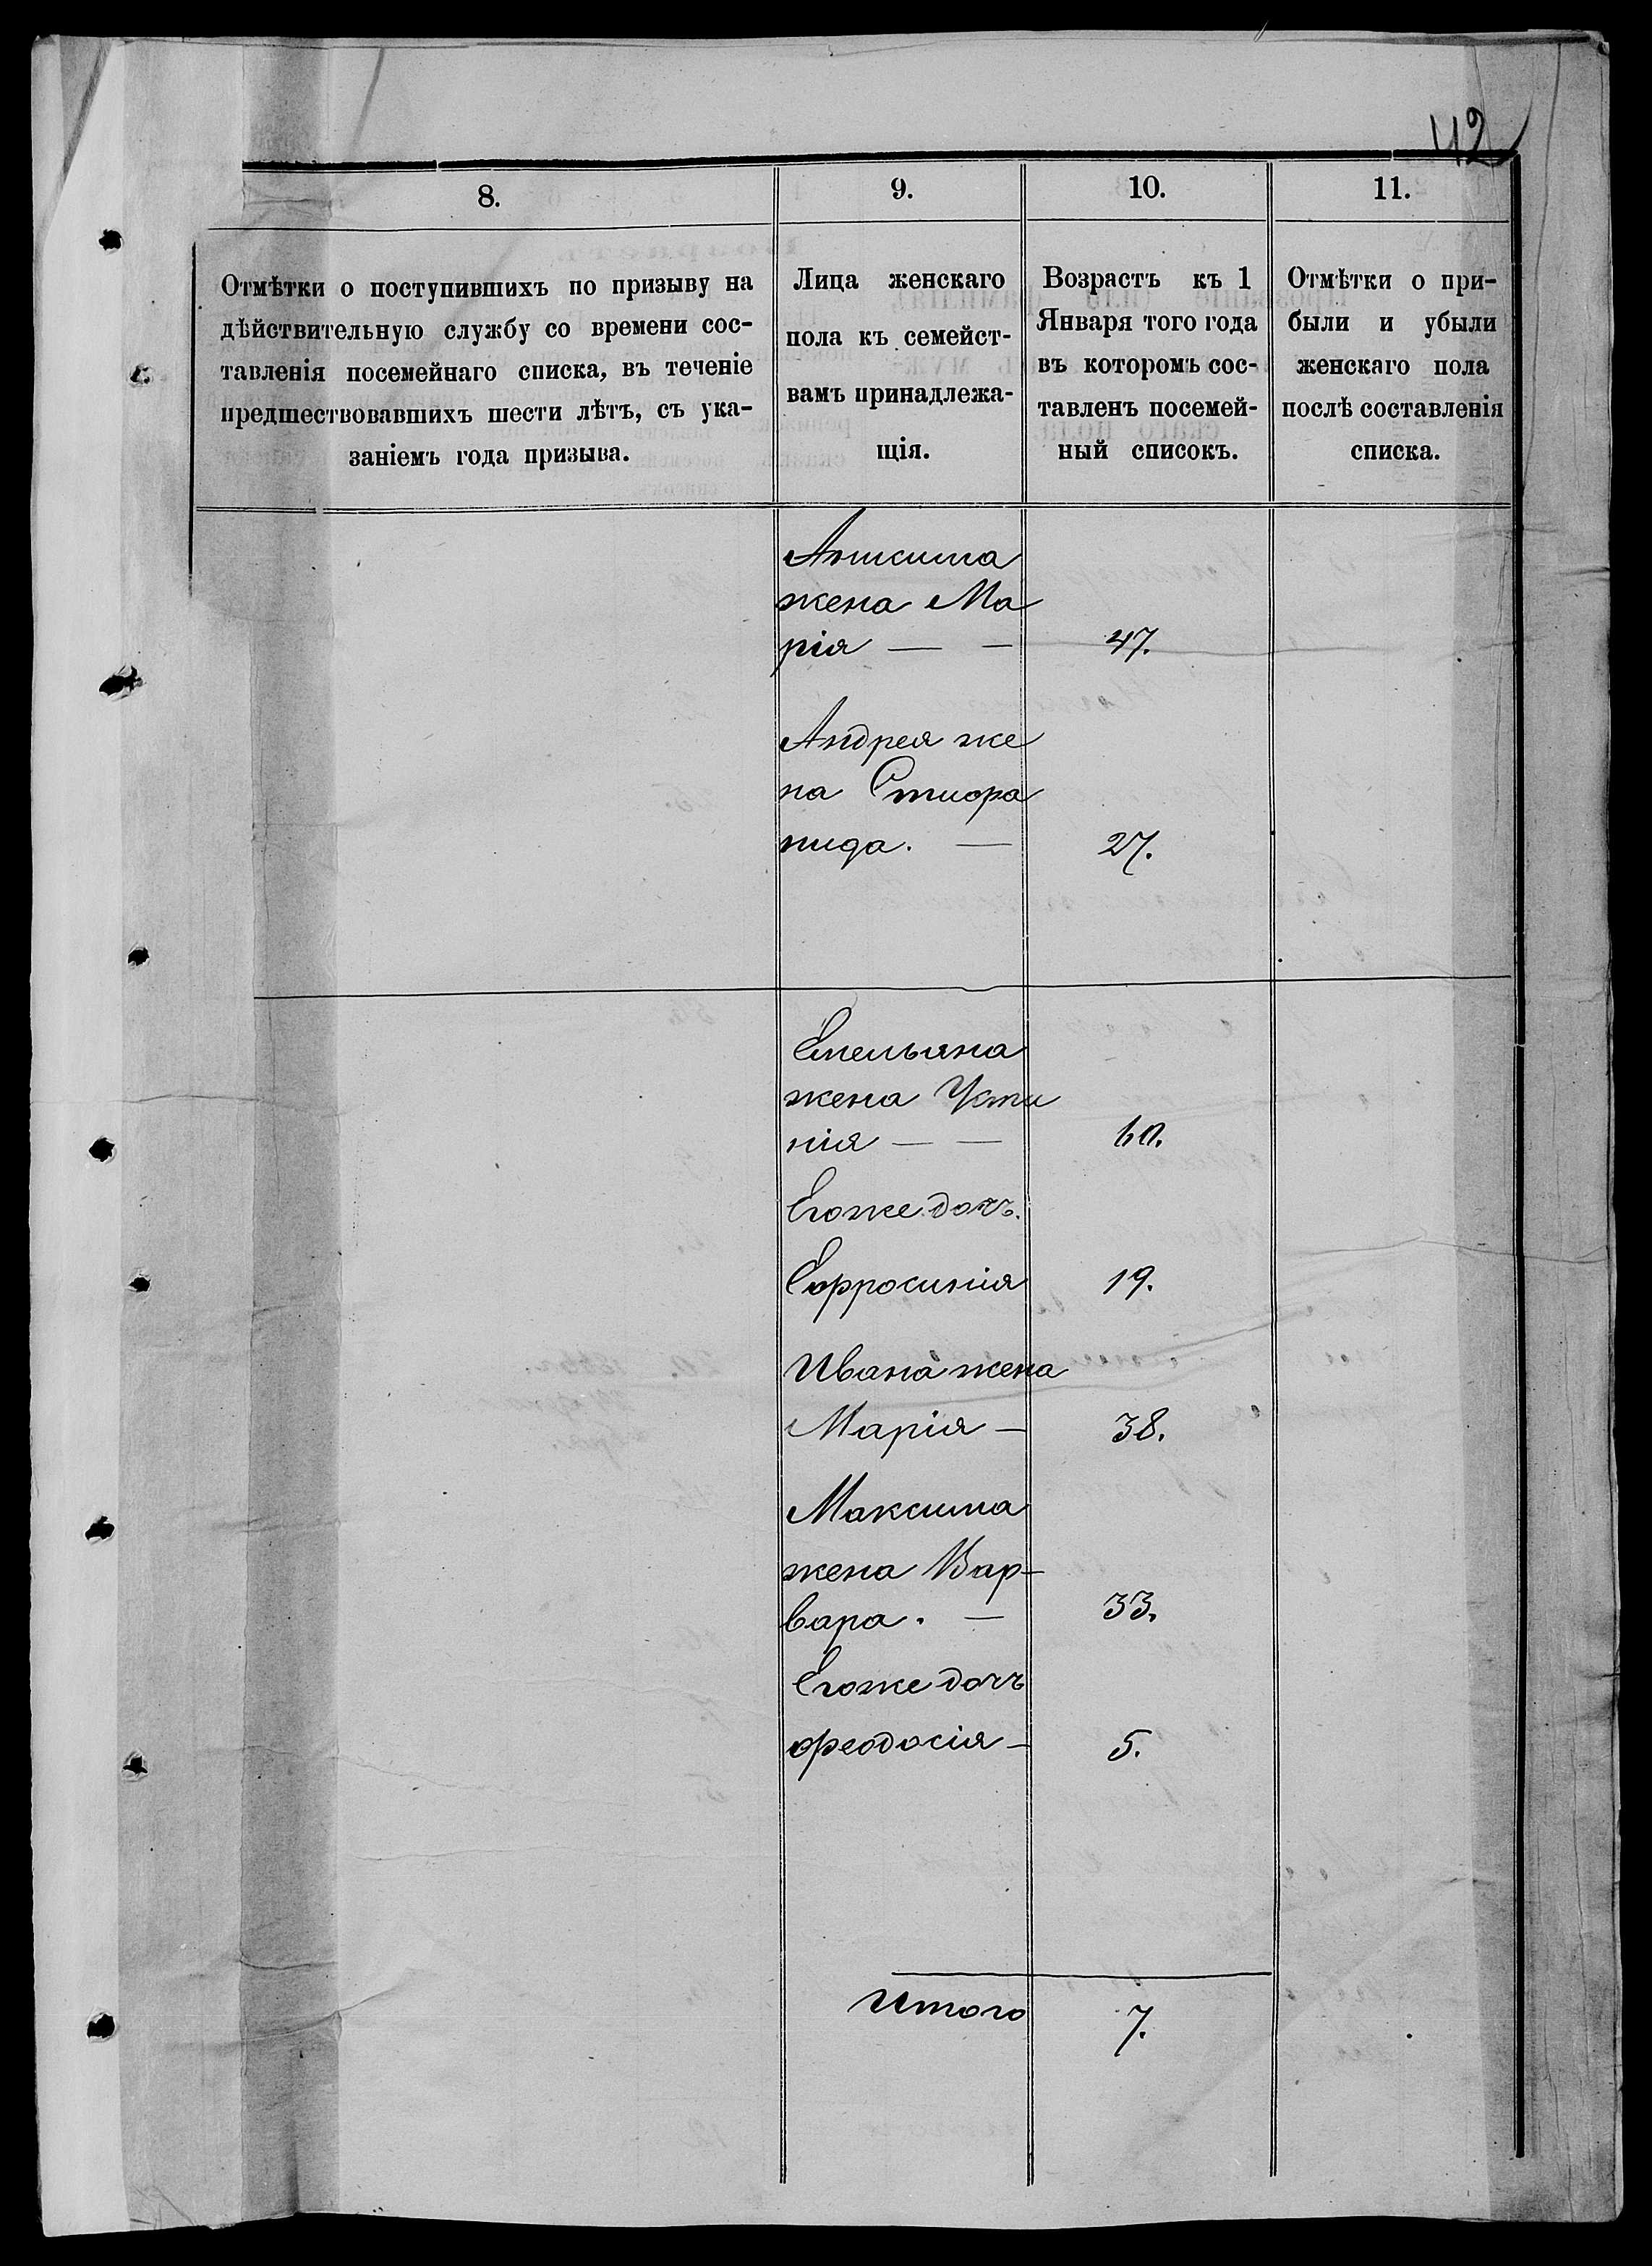 42
8.
9.
10.
11.
Отмѣтки о поступившихъ по призыву на
дѣйствительную службу со времени сос-
тавленія посемейнаго списка, въ теченіе
предшествовавшихъ шести лѣтъ, съ ука-
заніемъ года призыва.
Лица женскаго
пола къ семейст-
вамъ принадлежа-
щія.
Возрастъ къ 1
Января того года
въ которомъ сос-
тавленъ посемей-
ный списокъ.
Отмѣтки о при-
были и убыли
женскаго пола
послѣ составленія
списка.
жена Ма
рія — — 47.
Андрея же
на
нида. — 27.
Емельяна
жена Усти
нія — — 60.
Егоже дочь.
Ефросинія 19.
Ивана жена
Марія — 38.
Максима
жена Вар-
вара. — 33.
Егоже дочь
Феодосія — 5.
Итого 7.